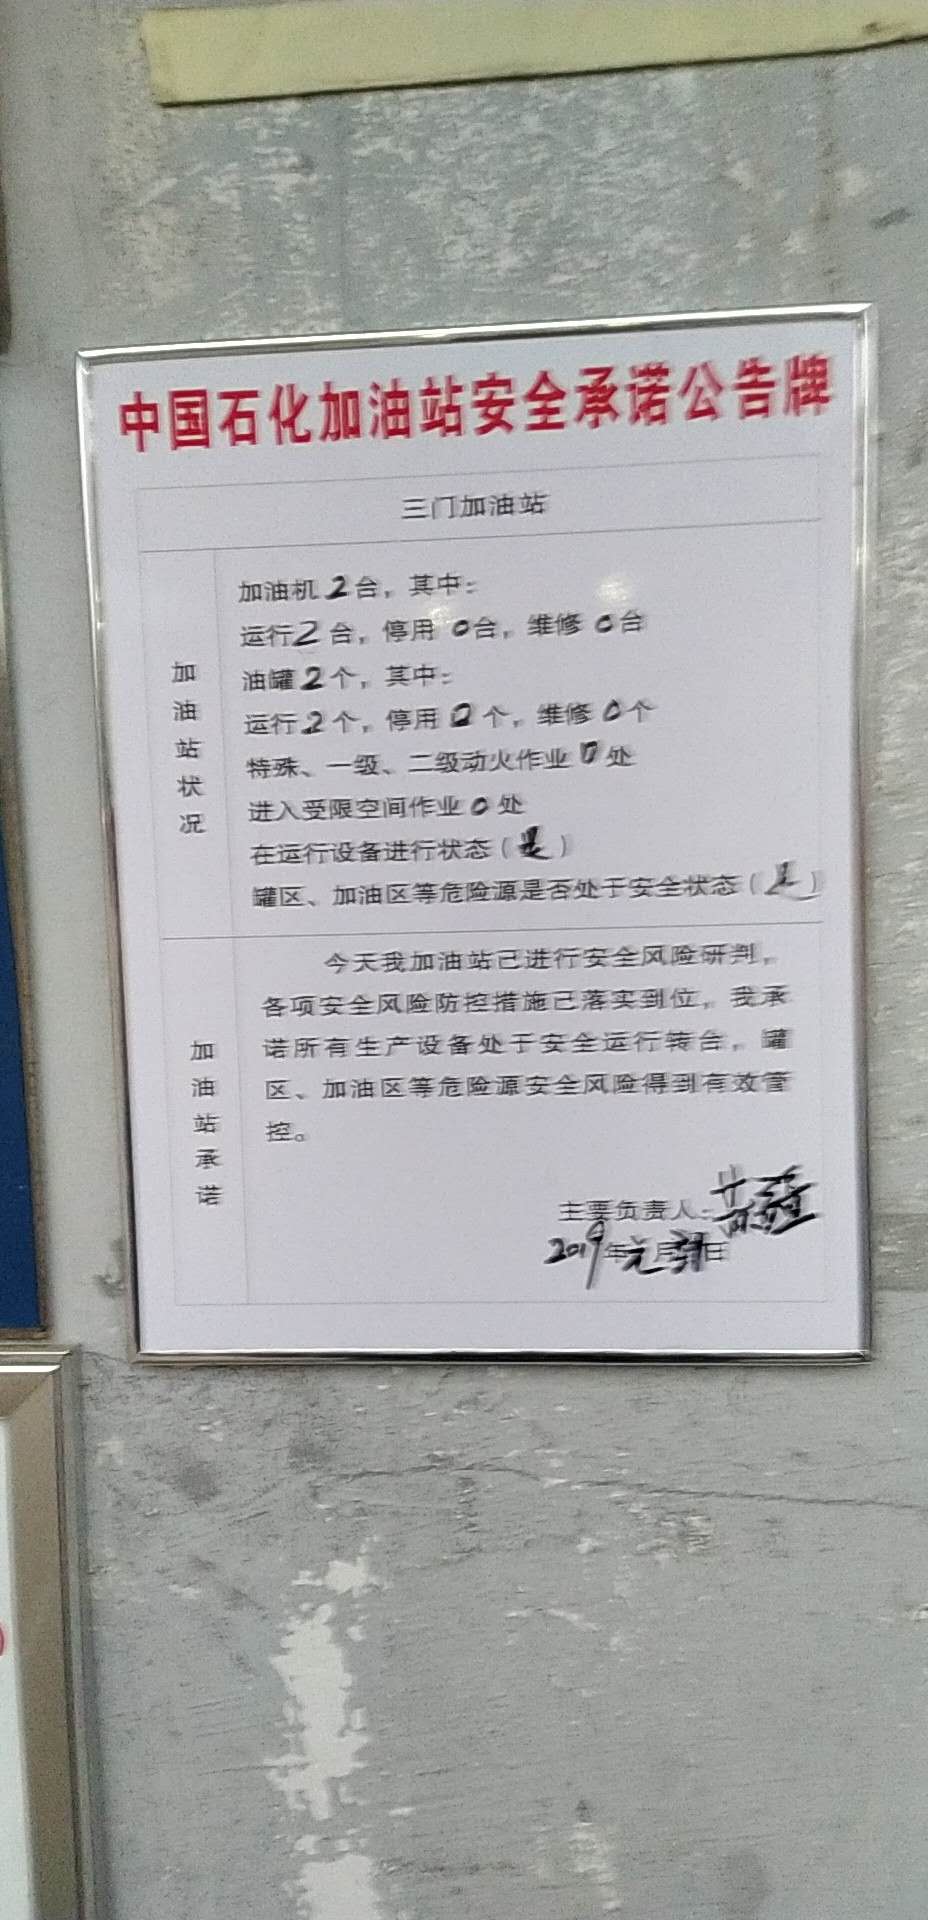 中国石化加油站安全承诺公告牌
三门加油站
加油站状况
加油机2台，其中：
运行2台，停用0台，维修0台
油罐2个，其中：
运行2个，停用0个，维修0个
特殊、一级、二级动火作业0处
进入受限空间作业0处
在运行设备进行状态（是）
罐区、加油区等危险源是否处于安全状态（是）
加油站承诺
今天我加油站已进行安全风险研判，
各项安全风险防控措施已落实到位，我承
诺所有生产设备处于安全运行转台，罐
区、加油区等危险源安全风险得到有效管
控。
主要负责人：
2019年元月日